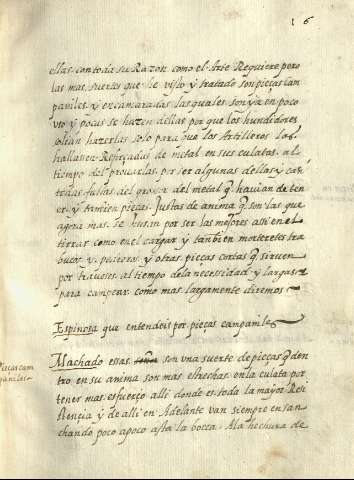 16
ellas con toda su Razon como el Arte Requiere pero
las mas fueras que he visto y tratado son pieças cam
paniles y encamaradas las quales son ya en poco
vso y pocas se hazen dellas por que los hundidores
solian hazerlas solo para que los Artilleros las
hallasen Reforçadas de metal en sus culatas al
tiempo del prouarlas por ser algunas dellas y cas
todas faltas del grosor del metal q̃ hauian de ten
er y tambien pieças Justas de anima q̃ son las que
agora mas se husan por ser las mejores assi en el
tirrar como en el cargar y tambien morteretes tra
bucos y pedreros y otras pieças cortas q̃ siruen
por traueses al tiempo de la necesidad y largas
para campear como mas largamente diremos
Espinosa que entendeis por pieças campaniles
pieças cam
paniles
Machado essas son vna suerte de pieças q̃ den
tro en su anima son mas estrechas en la culata por
tener mas esfuerço alli donde es toda la mayor Resi
stençia y de alli en Adelante van siempre ensan
chando poco apoco asta la bocca. Ala hechura de